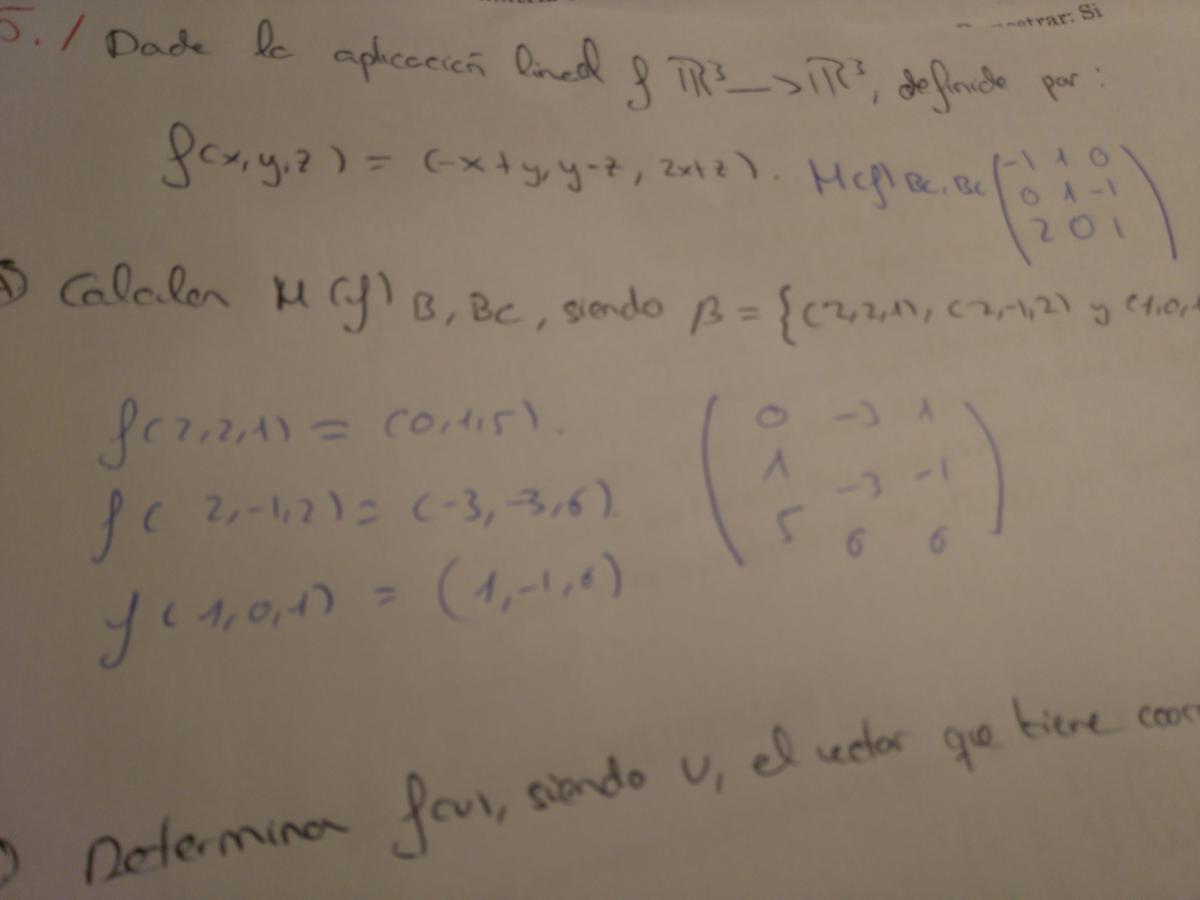 trar: Si
5./ Dada la aplicación lineal f ℝ³ —> ℝ³, definida por:
f(x,y,z) = (-x+y, y-z, 2x+z). M(f) Bc, Bc (-1 1 0
0 1 -1
2 0 1)
Calcular M(f) B, Bc, siendo β = {(2,2,1), (2,-1,2) y (1,0,1
f(2,2,1) = (0,1,5).
f(2,-1,2) = (-3,-3,6).
f(1,0,1) = (1,-1,6)
(0 -3 1
1 -3 -1
5 6 6)
Determinar f(v), siendo v, el vector que tiene coor